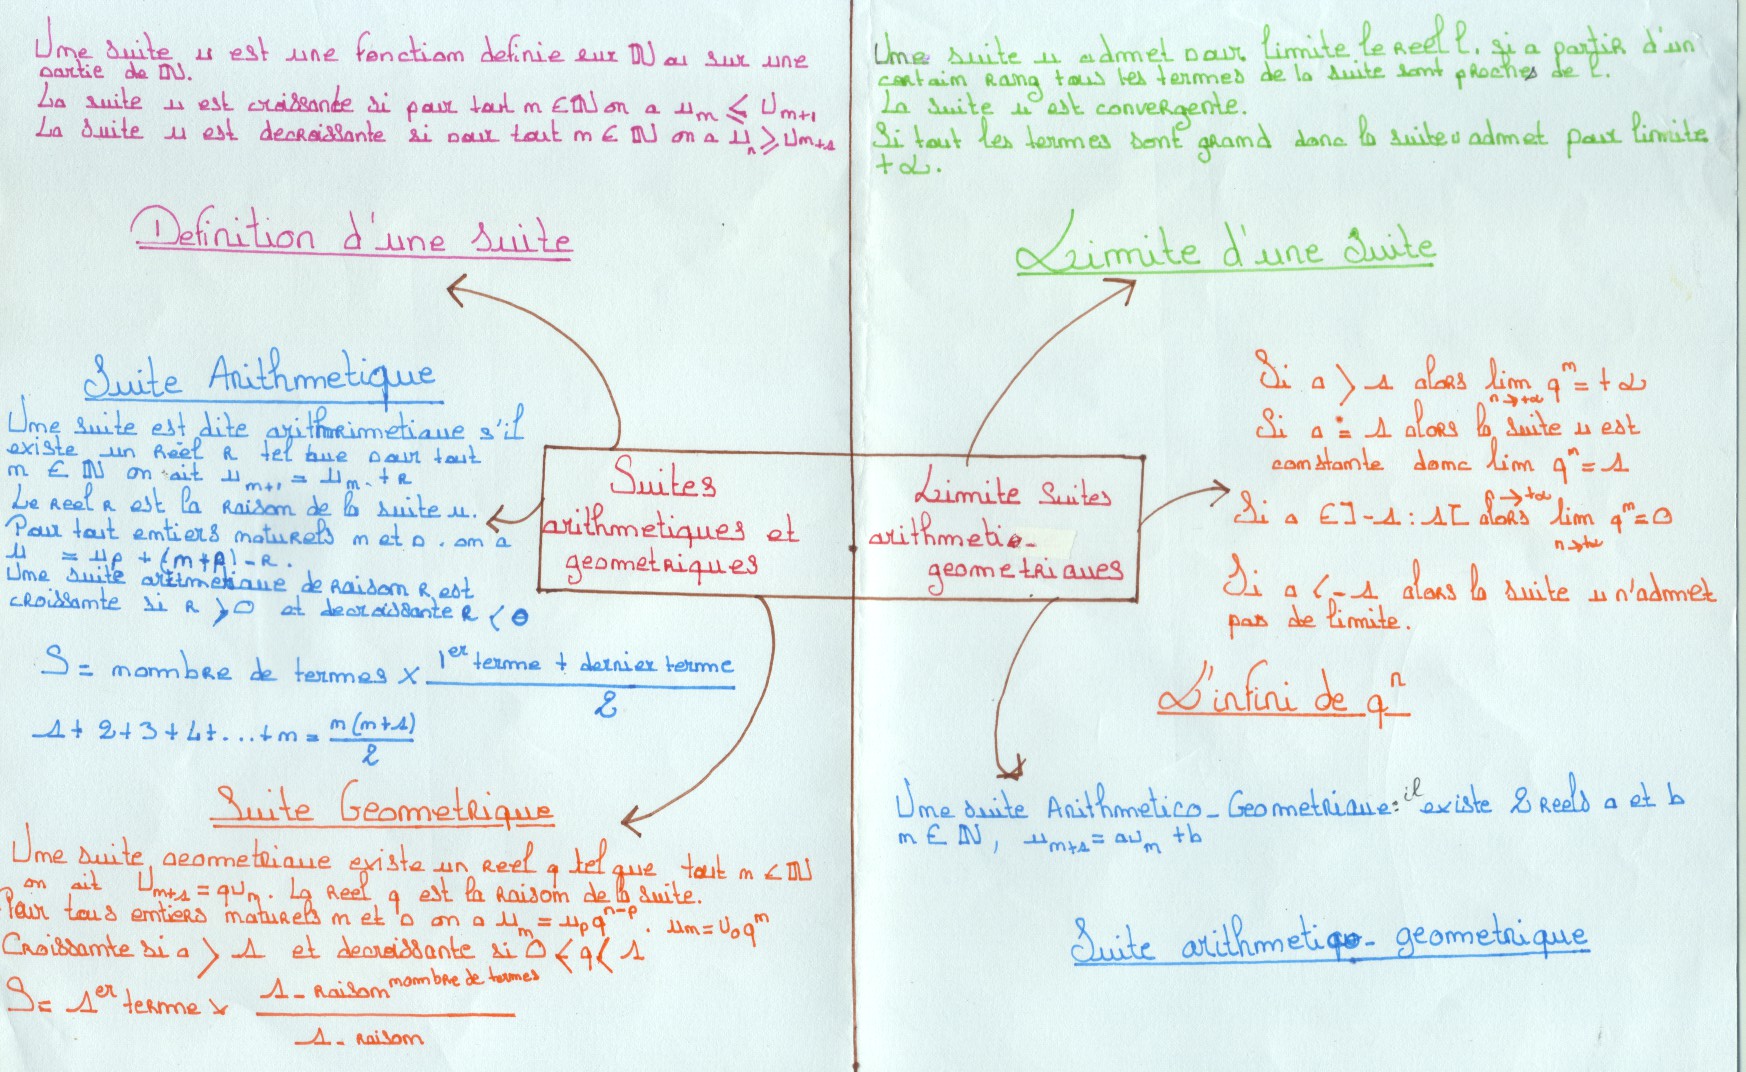 Une suite u est une fonction definie sur ℕ ou sur une
partie de ℕ.
La suite u est croissante si pour tout n ∈ ℕ on a uₙ ⩽ Uₙ₊₁
La suite u est decroissante si pour tout n ∈ ℕ on a uₙ ⩾ Uₙ₊₁
Definition d'une suite
Suite Arithmetique
Une suite est dite arithmimetique s'il
existe un réel R tel que pour tout
n ∈ ℕ on ait uₙ₊₁ = uₙ + R
Le reel R est la raison de la suite u.
Pour tout entiers naturels n et p. on a
u = up + (n+p) - R.
Une suite aritmetique de raison R est
croissante si R > 0 et decroissante R < 0
S = nombre de termes × (1er terme + dernier terme) / 2
1 + 2 + 3 + 4 + ... + n = n(n+1) / 2
Suite Geometrique
Une suite geometrique existe un reel q tel que tout n ∈ ℕ
on ait Uₙ₊₁ = quₙ. Le reel q est la raison de la suite.
Pour tous entiers naturels n et p on a uₙ = up qⁿ⁻ᵖ. uₙ = u₀qⁿ
Croissante si q > 1 et decroissante si 0 < q < 1
S = 1er terme × (1 - raison^nombre de termes) / (1 - raison)
Suites
arithmetiques et
geometriques
Limite Suites
arithmetico-
geometriques
Une suite u admet pour limite le reel l. si a partir d'un
certain rang tous les termes de la suite sont proches de l.
La suite u est convergente.
Si tout les termes sont grand donc la suite u admet pour limite
+∞.
Limite d'une Suite
Si q > 1 alors lim n→+∞ qⁿ = +∞
Si q = 1 alors la suite u est
constante donc lim n→+∞ qⁿ = 1
Si q ∈ ]-1 : 1[ alors lim n→+∞ qⁿ = 0
Si q < -1 alors la suite u n'admet
pas de limite.
L'infini de qⁿ
Une suite Arithmetico-Geometrique: il existe 2 reels a et b
n ∈ ℕ, uₙ₊₁ = auₙ + b
Suite arithmetiqo-geometrique